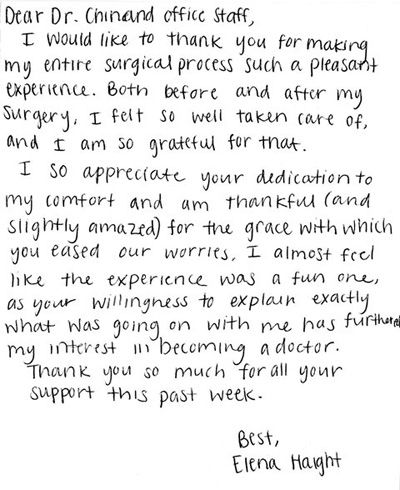 Dear Dr. Chin and office staff,
I would like to thank you for making
my entire surgical process such a pleasant
experience. Both before and after my
surgery, I felt so well taken care of,
and I am so grateful for that.
I so appreciate your dedication to
my comfort and am thankful (and
slightly amazed) for the grace with which
you eased our worries. I almost feel
like the experience was a fun one,
as your willingness to explain exactly
what was going on with me has furthered
my interest in becoming a doctor.
Thank you so much for all your
support this past week.
Best,
Elena Haight